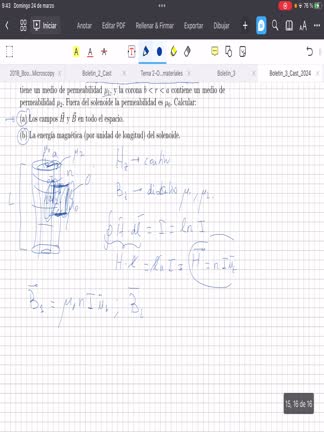 9:43 Domingo 24 de marzo
76 %
Inicio
Anotar
Editar PDF
Rellenar & Firmar
Convertir
2018_Boo...Microscopy
Boletin_2_Cast
Tema 2-D...materiales
Boletin_3
Boletin_3_Cast_2024
tiene un medio de permeabilidad μ₁, y la corona b < r < a contiene un medio de
permeabilidad μ₂. Fuera del solenoide la permeabilidad es μ₀. Calcular:
(a) Los campos H⃗ y B⃗ en todo el espacio.
(b) La energía magnética (por unidad de longitud) del solenoide.
L
∮ H⃗ dl⃗ = I = ln I
H⃗ = n I u⃗
B⃗₁ = μ₁ n I u⃗ ; B⃗
15, 16 de 16